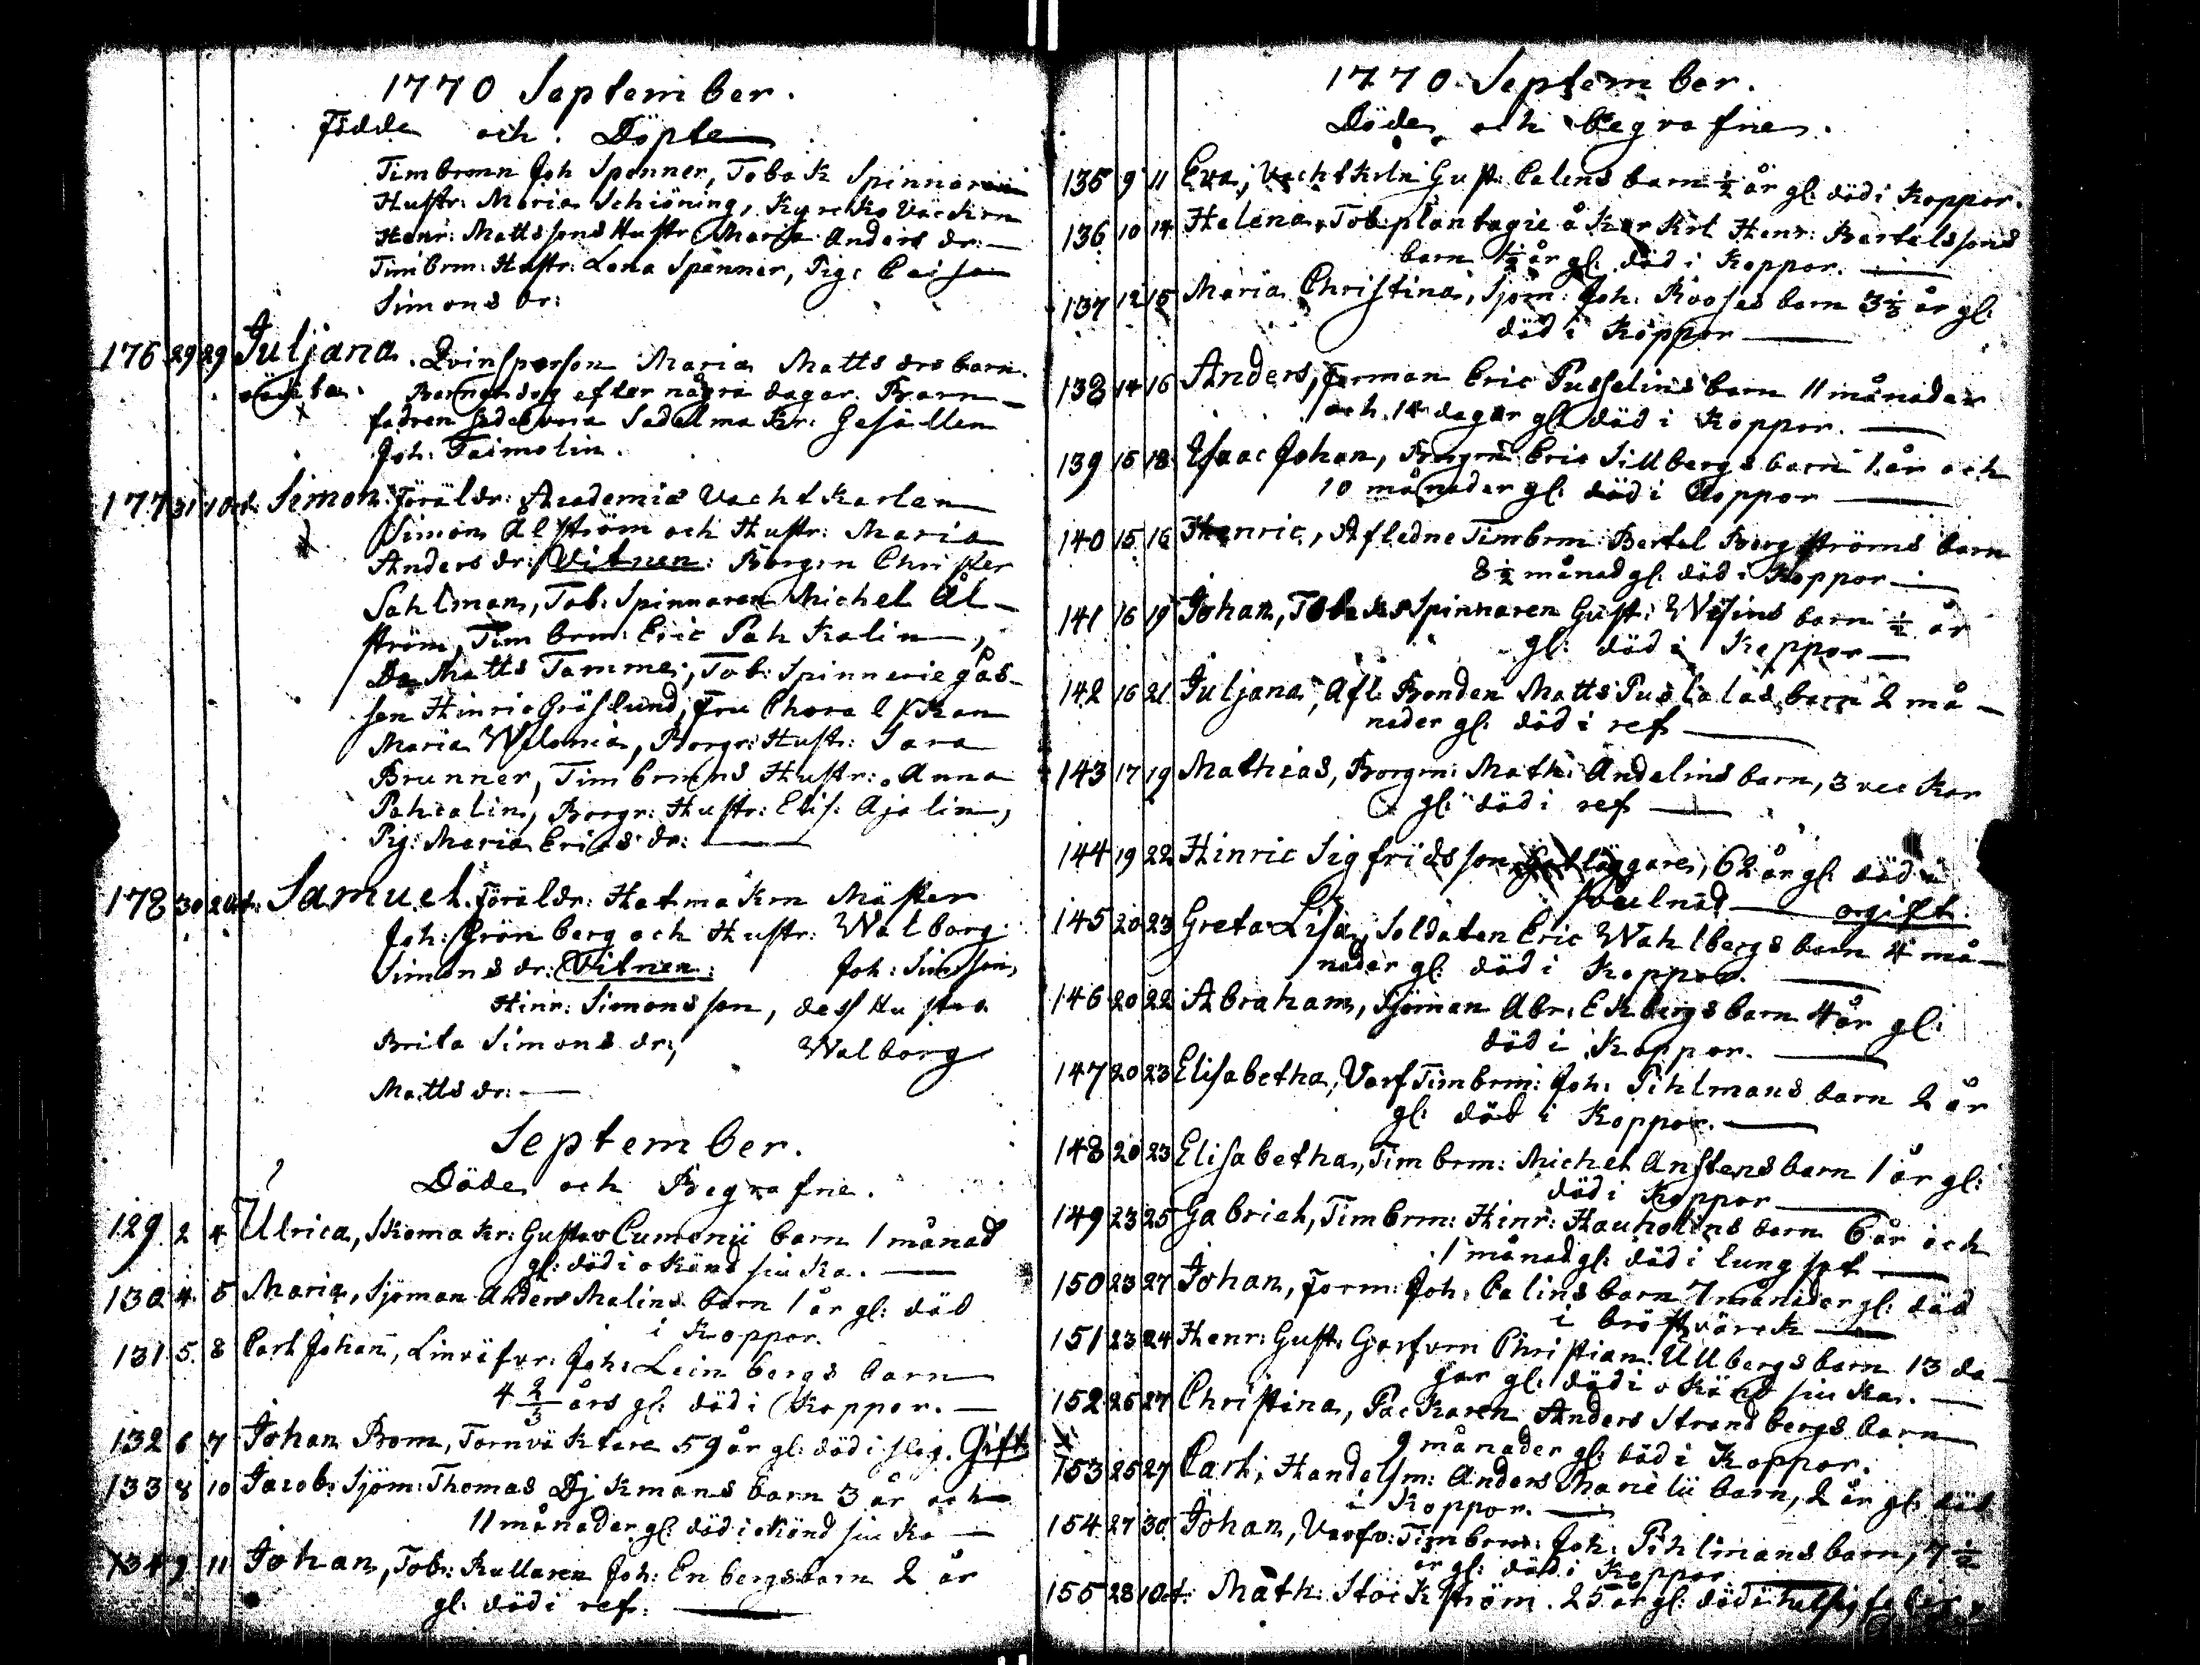 1770 September.
Födde och Döpte
Timbrmn Joh Spenner, Tobak Spinnaren
Hustr: Maria Schiöning, Kyrcko Väcktrn
Henr: Mattssons Hustr Maria Anders dr:
Timbrm: Hustr: Lena Spänner, Pig: Caisa
Simons dr:
176 29 29 Juljana. Qvinsperson Maria Matts drs barn.
oäckta. Barnet dog efter några dagar. Barn
fadren sades vara Sadelmakr: Gesällen
Joh: Taimolin.
177 31 1 Oct: Simon. Föräldr: Academiæ Vachtkarlen
Simon Ålström och Hustr: Maria
Anders dr: Vitnen: Borgrn Christer
Sahlman, Tob: Spinnaren Michel Ål-
ström, Timbrm: Eric Pahkalin,
Do Matts Tamme, Tob: Spinnerie gås-
sen Hinric Gröslund, Fru
Maria Welonia, Borgr: Hustr: Sara
Brunner, Timbrmns Hustr: Anna
Pahcalin, Borgr: Hustr: Elis: Ajalin,
Pig: Maria Erics dr:
178 30 2 Oct: Samuel. Föräldr: Hatmakrn Mäster
Joh: Grönberg och Hustr: Walborg
Simons dr: Vitnen: Joh: Simsson,
Hinr: Simonsson, dess Hustro
Brita Simons dr, Walborg
Matts dr:
September.
Döde och Begrafne.
129 2 4 Ulrica, Skomakr: Gustav Cumenii barn 1 månad
gl: död i okänd siuka.
130 4 5 Maria, Sjöman Anders Malins barn 1 år gl: död
i Koppor.
131 5 8 Carl Johan, Linväfvr: Joh: Leinbergs barn
4 2/3 års gl: död i Koppor.
132 6 7 Johan Bom, Tornväktare 59 år gl: död i slag. Gift
133 8 10 Jacob, Sjöm: Thomas Djkmans barn 3 år och
11 månader gl: död i okänd siuka
134 9 11 Johan, Tob: Rullaren Joh: Enbergs barn 2 år
gl: död i ref:
1770 September.
Döde och Begrafne.
135 9 11 Eva, Vachtkrln Gust: Calens barn 1/2 år gl: död i Koppor.
136 10 14 Helena, Tob: plantagie åkerkrl Henr: Bertelssons
barn 1 1/2 år gl: död i Koppor.
137 12 15 Maria Christina, Sjöm: Joh: Rooses barn 3 1/3 år gl:
död i Koppor
138 14 16 Anders, Forman Eric Pusselins barn 11 månader
och 14 dagar gl: död i Koppor.
139 15 18 Isaac Johan, Borgrn Eric Sillbergs barn 1 år och
10 månader gl: död i Koppor
140 15 16 Henric, Afledne Timbrm: Bertel Bergströms barn
8 1/2 månad gl: död i Koppor
141 16 19 Johan, Tobaks Spinnaren Gust: Wisins barn 1/2 år
gl: död i Koppor
142 16 21 Juljana, Afl: Bonden Matts Puslalas barn 2 må-
nader gl: död i ref
143 17 19 Mathias, Borgrn: Math: Andelins barn, 3 veckor
gl: död i ref
144 19 22 Hinric Sigfridsson Gatläggare, 62 år gl: död i
svulnad ogift.
145 20 23 Greta Lisa, Soldaten Eric Wahlbergs barn 4 må-
nader gl: död i Koppor.
146 20 22 Abraham, Sjöman Abr: Ekbergs barn 4 år gl:
död i Koppor.
147 20 23 Elisabetha, Varf Timbrm: Joh: Pihlmans barn 2 år
gl: död i Koppor.
148 20 23 Elisabetha, Timbrm: Michel Anstens barn 1 år gl:
död i Koppor
149 23 25 Gabriel, Timbrm: Hinr: Hauholins barn 6 år och
1 månad gl: död i lungsot
150 23 27 Johan, Form: Joh: Calins barn 7 månader gl: död
i bröstvärck
151 23 24 Henr: Gust: Garfvrn Christian Ullbergs barn 13 da-
gar gl: död i okänd siuka.
152 26 27 Christina, Packaren Anders Strandbergs barn
9 månader gl: död i Koppor.
153 25 27 Carl, Handelsm: Anders Marielii barn, 2 år gl: död
i Koppor.
154 27 30 Johan, Varfv: Timbrm: Joh: Pihlmans barn, 7 1/2
år gl: död i Koppor
155 28 1 Oct: Math: Stockström. 25 år gl: död i